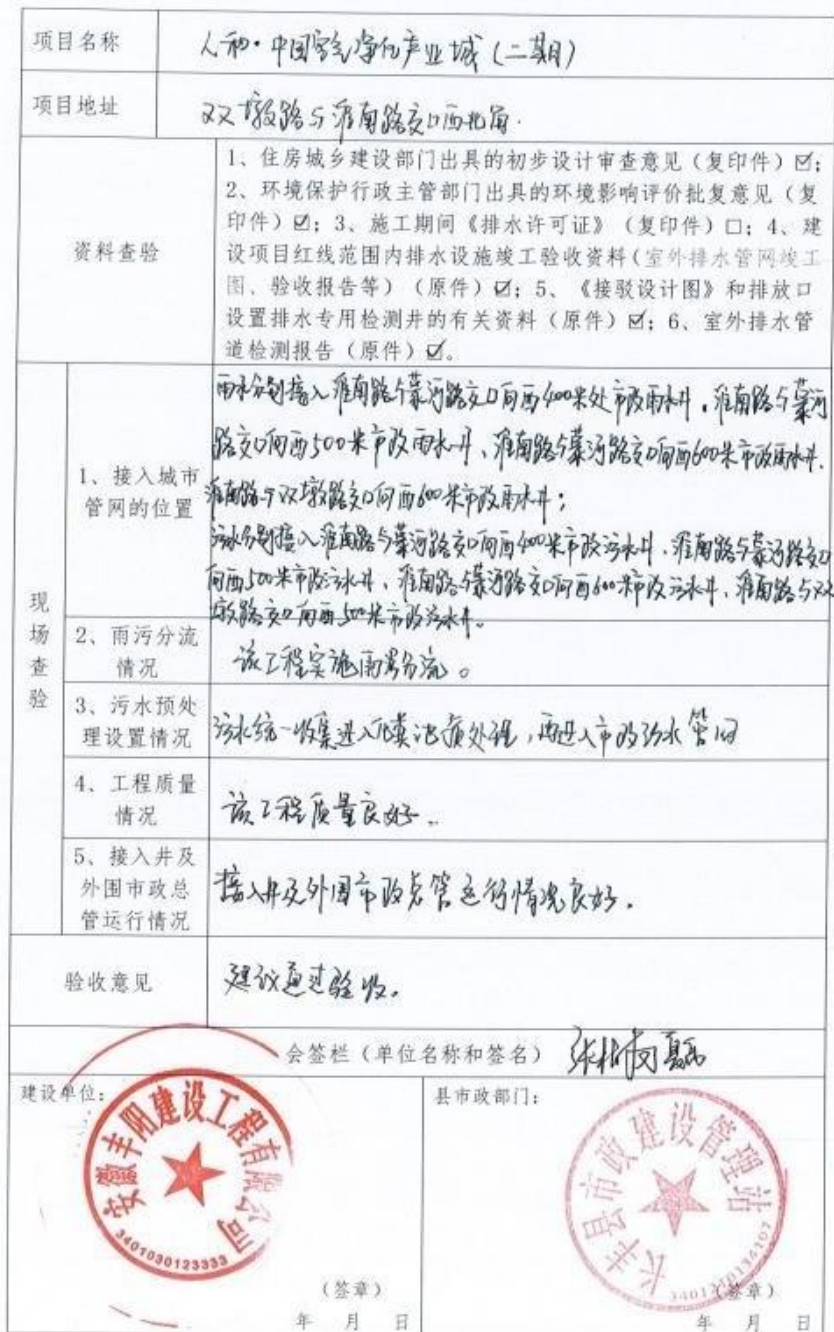 项目名称
人和·中国空气净化产业城(二期)
项目地址
双墩路与淮南路交口西北角.
资料查验
1、住房城乡建设部门出具的初步设计审查意见(复印件)☑;
2、环境保护行政主管部门出具的环境影响评价批复意见(复
印件)☑;3、施工期间《排水许可证》(复印件)□;4、建
设项目红线范围内排水设施竣工验收资料(室外排水管网竣工
图、验收报告等)(原件)☑;5、《接驳设计图》和排放口
设置排水专用检测井的有关资料(原件)☑;6、室外排水管
道检测报告(原件)☑。
现场查验
1、接入城市
管网的位置
雨水分别接入淮南路与菜河路交口向西400米处市政雨水井,淮南路与菜河
路交口向西500米市政雨水井、淮南路与菜河路交口向西600米市政雨水井.
淮南路与双墩路交口向西600米市政雨水井;
污水分别接入淮南路与菜河路交口向西400米市政污水井,淮南路与菜河路交口
向西500米市政污水井,淮南路与菜河路交口向西600米市政污水井、淮南路与双
墩路交口向西500米市政污水井。
2、雨污分流
情况
该工程实施雨污分流。
3、污水预处
理设置情况
污水统一收集进入化粪池预处理,再进入市政污水管网
4、工程质量
情况
该工程质量良好.
5、接入井及
外围市政总
管运行情况
接入井及外围市政总管运行情况良好.
验收意见
建议通过验收.
会签栏(单位名称和签名)
建设单位:
县市政部门:
安徽丰阳建设工程有限公司
3401030123333
长丰县市政建设管理站
(签章)
(签章)
年 月 日
年 月 日